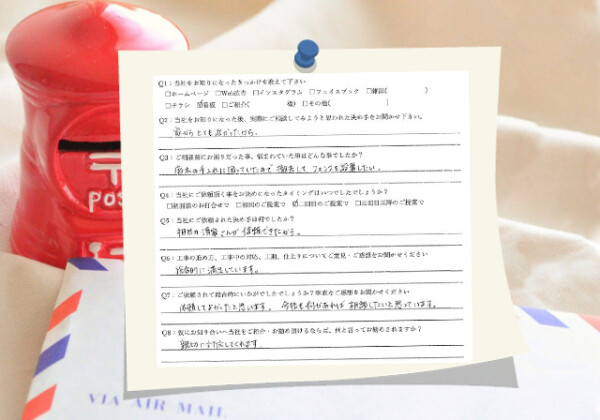 Q1：当社をお知りになったきっかけを教えて下さい
□ホームページ □Web広告 □インスタグラム □フェイスブック □雑誌( )
□チラシ 看板 □ご紹介( 様) □その他( )
Q2：当社をお知りになった後、実際にご相談してみようと思われた決め手をお聞かせ下さい。
家からとても近かったから。
Q3：ご相談前にお困りだった事、悩まれていた事はどんな事でしたか？
庭木の手入れに困っていたので撤去してフェンスを設置したい。
Q4：当社にご依頼頂く事をお決めになったタイミングはいつでしたでしょうか？
□初回のご提案で 二回目のご提案で □三回目以降のご提案で
Q5：当社にご依頼された決め手は何でしたか？
担当の須家さんが信頼できたから。
Q6：工事の進め方、工事中の対応、工期、仕上りについてご意見・ご感想をお聞かせください
全体的に満足しています。
Q7：ご依頼されて総合的にいかがでしたでしょうか？率直なご感想をお聞かせください
依頼してよかったと思います。今後も何かあれば相談したいと思っています。
Q8：仮にお知り合いへ当社をご紹介・お勧め頂けるならば、何と言ってお勧めされますか？
親切に対応してくれます。
POS
VIA AIR MAIL